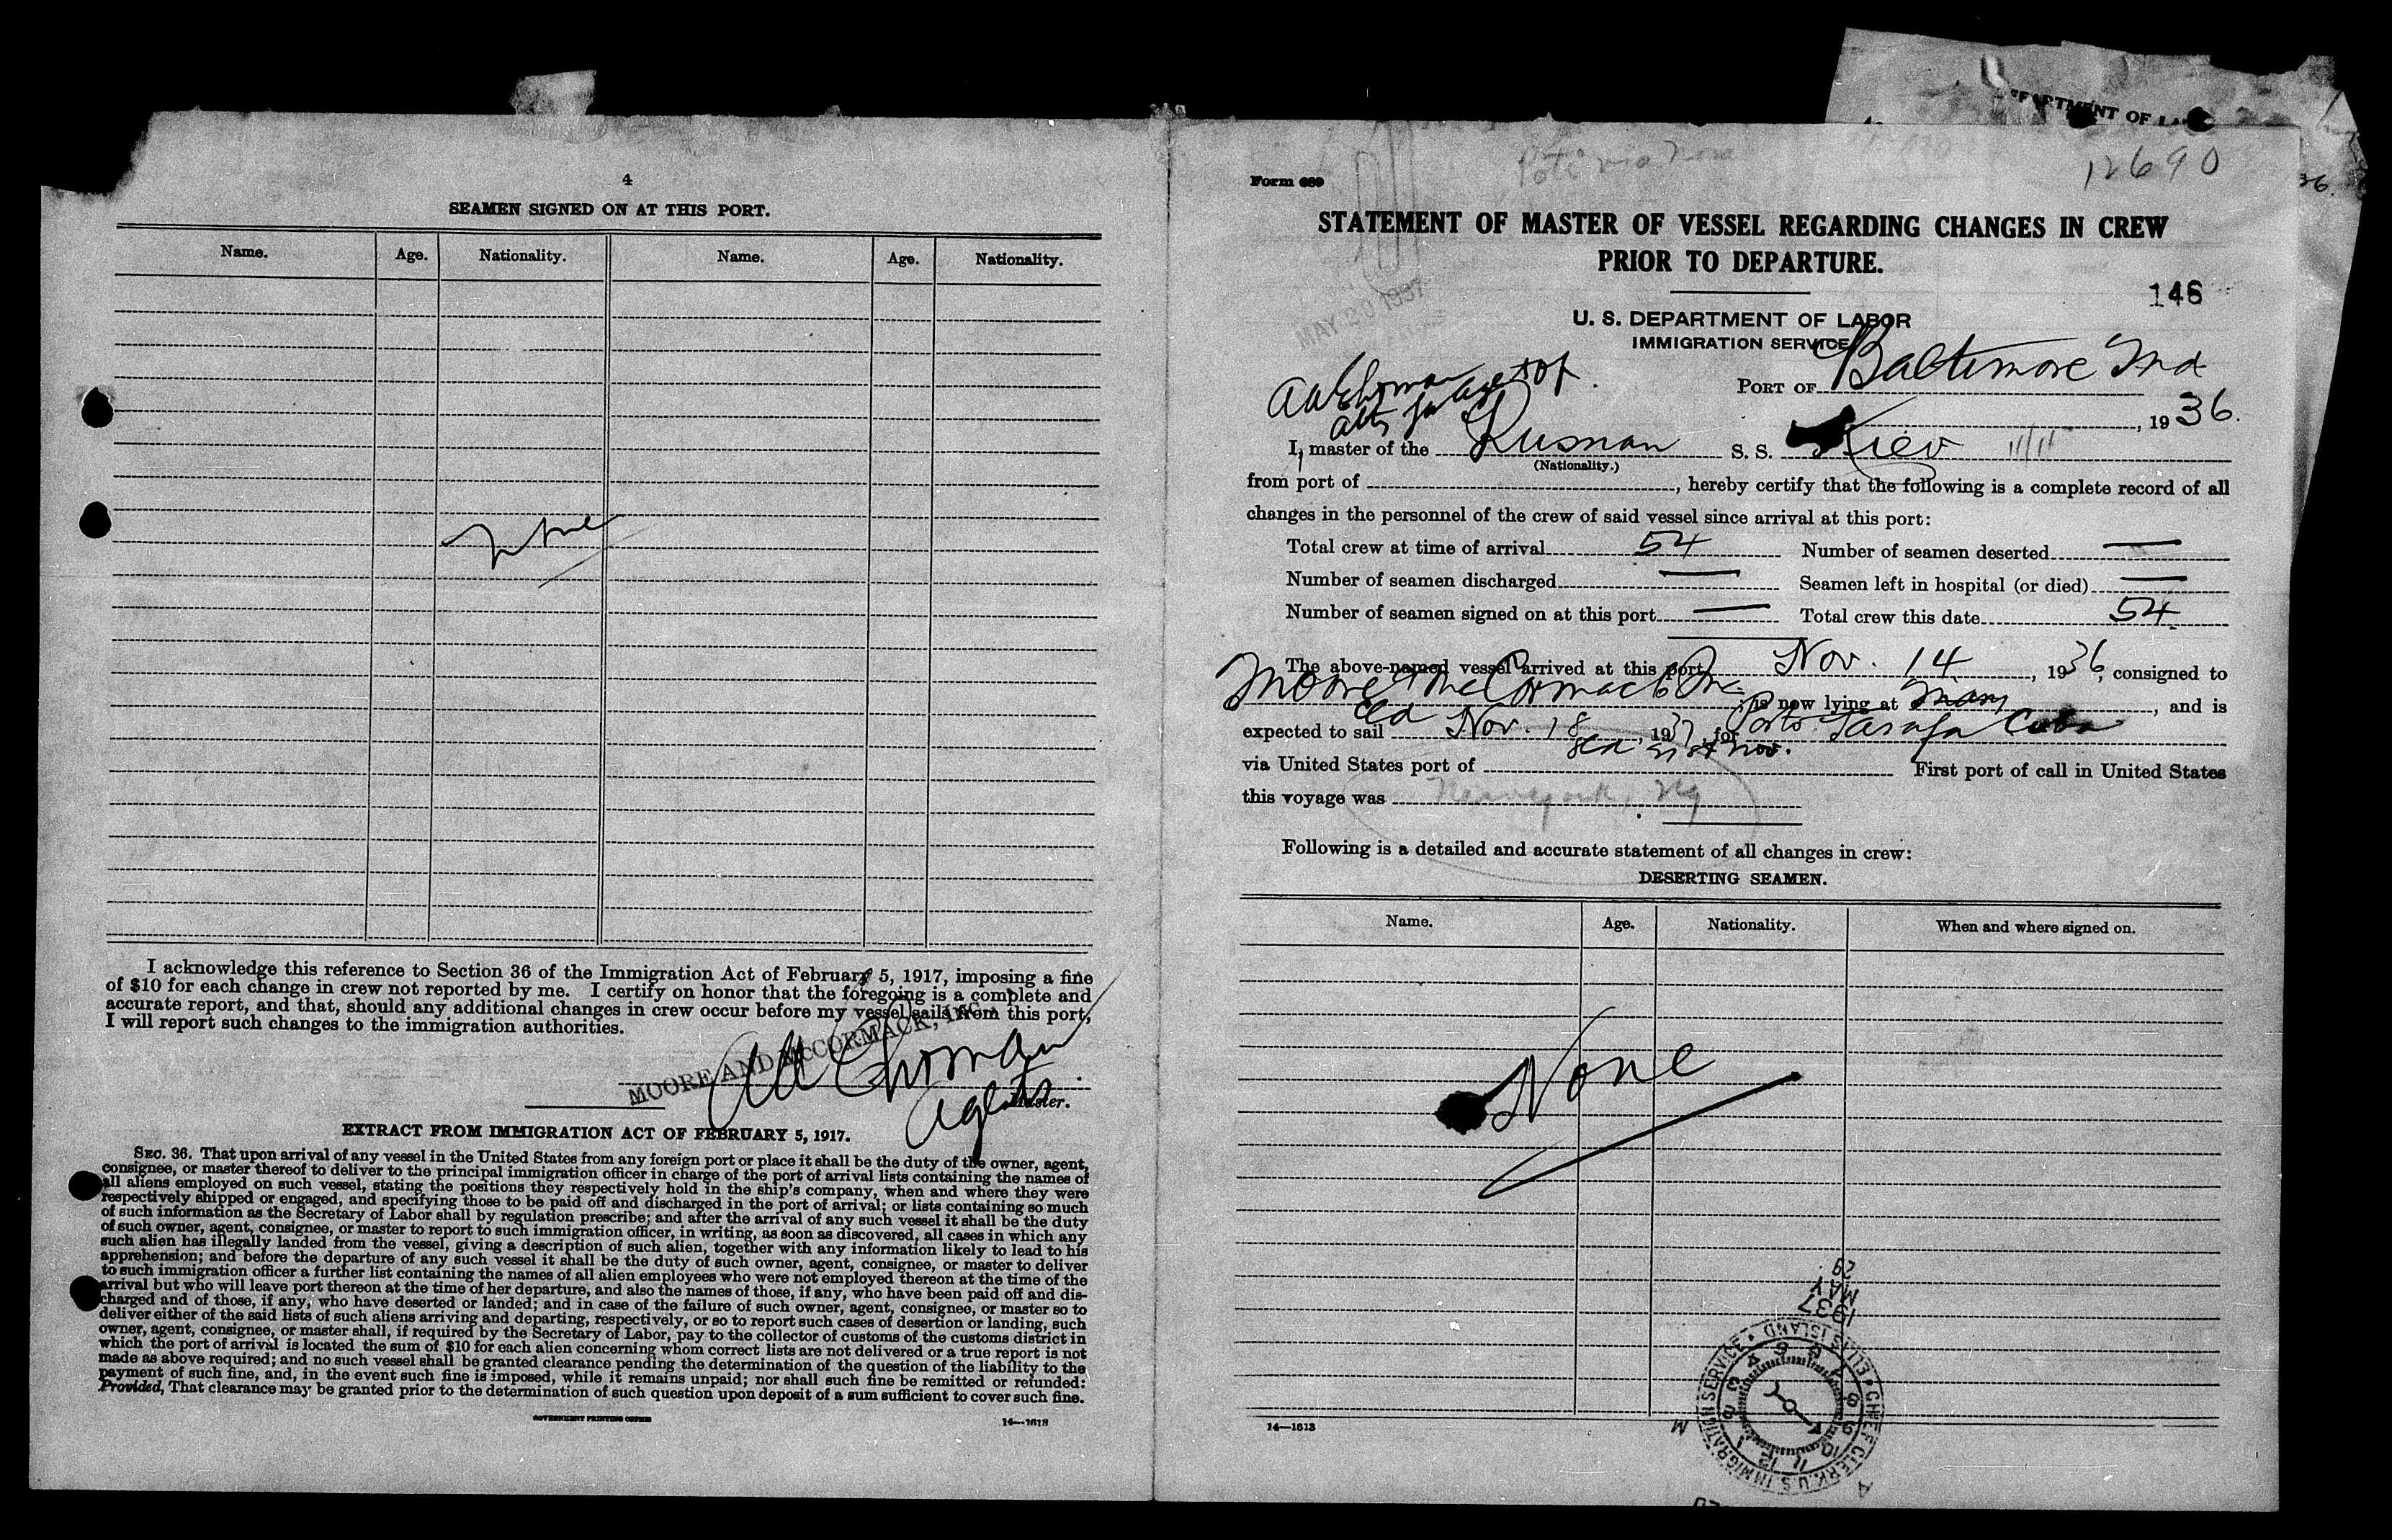 4
SEAMEN SIGNED ON AT THIS PORT.
Name. Age. Nationality. Name. Age. Nationality.
None
I acknowledge this reference to Section 36 of the Immigration Act of February 5, 1917, imposing a fine
of $10 for each change in crew not reported by me. I certify on honor that the foregoing is a complete and
accurate report, and that, should any additional changes in crew occur before my vessel sails from this port,
I will report such changes to the immigration authorities.
MOORE AND MCCORMACK, INC.
Master.
EXTRACT FROM IMMIGRATION ACT OF FEBRUARY 5, 1917.
SEC. 36. That upon arrival of any vessel in the United States from any foreign port or place it shall be the duty of the owner, agent,
consignee, or master thereof to deliver to the principal immigration officer in charge of the port of arrival lists containing the names of
all aliens employed on such vessel, stating the positions they respectively hold in the ship's company, when and where they were
respectively shipped or engaged, and specifying those to be paid off and discharged in the port of arrival; or lists containing so much
of such information as the Secretary of Labor shall by regulation prescribe; and after the arrival of any such vessel it shall be the duty
of such owner, agent, consignee, or master to report to such immigration officer, in writing, as soon as discovered, all cases in which any
such alien has illegally landed from the vessel, giving a description of such alien, together with any information likely to lead to his
apprehension; and before the departure of any such vessel it shall be the duty of such owner, agent, consignee, or master to deliver
to such immigration officer a further list containing the names of all alien employees who were not employed thereon at the time of the
arrival but who will leave port thereon at the time of her departure, and also the names of those, if any, who have been paid off and dis-
charged and of those, if any, who have deserted or landed; and in case of the failure of such owner, agent, consignee, or master so to
deliver either of the said lists of such aliens arriving and departing, respectively, or so to report such cases of desertion or landing, such
owner, agent, consignee, or master shall, if required by the Secretary of Labor, pay to the collector of customs of the customs district in
which the port of arrival is located the sum of $10 for each alien concerning whom correct lists are not delivered or a true report is not
made as above required; and no such vessel shall be granted clearance pending the determination of the question of the liability to the
payment of such fine, and, in the event such fine is imposed, while it remains unpaid; nor shall such fine be remitted or refunded:
Provided, That clearance may be granted prior to the determination of such question upon deposit of a sum sufficient to cover such fine.
GOVERNMENT PRINTING OFFICE 14—1613
DEPARTMENT OF
12690
Form 689
STATEMENT OF MASTER OF VESSEL REGARDING CHANGES IN CREW
PRIOR TO DEPARTURE.
146
MAY 20 1937
U. S. DEPARTMENT OF LABOR
IMMIGRATION SERVICE
PORT OF Baltimore Md
, 1936.
I, master of the Rusman S. S. Kiev
(Nationality.)
from port of , hereby certify that the following is a complete record of all
changes in the personnel of the crew of said vessel since arrival at this port:
Total crew at time of arrival 54 Number of seamen deserted —
Number of seamen discharged — Seamen left in hospital (or died) —
Number of seamen signed on at this port — Total crew this date 54
The above-named vessel arrived at this port Nov. 14, 1936, consigned to
Moore & McCormack Inc; is now lying at , and is
expected to sail Nov. 18, 1937, for Porto Tarafa Cuba
21st Nov.
via United States port of First port of call in United States
this voyage was New york, Ny
Following is a detailed and accurate statement of all changes in crew:
DESERTING SEAMEN.
Name. Age. Nationality. When and where signed on.
None
1937
MAY
29
CHIEF CLERK U.S. IMMIGRATION SERVICE • ELLIS ISLAND •
14—1613